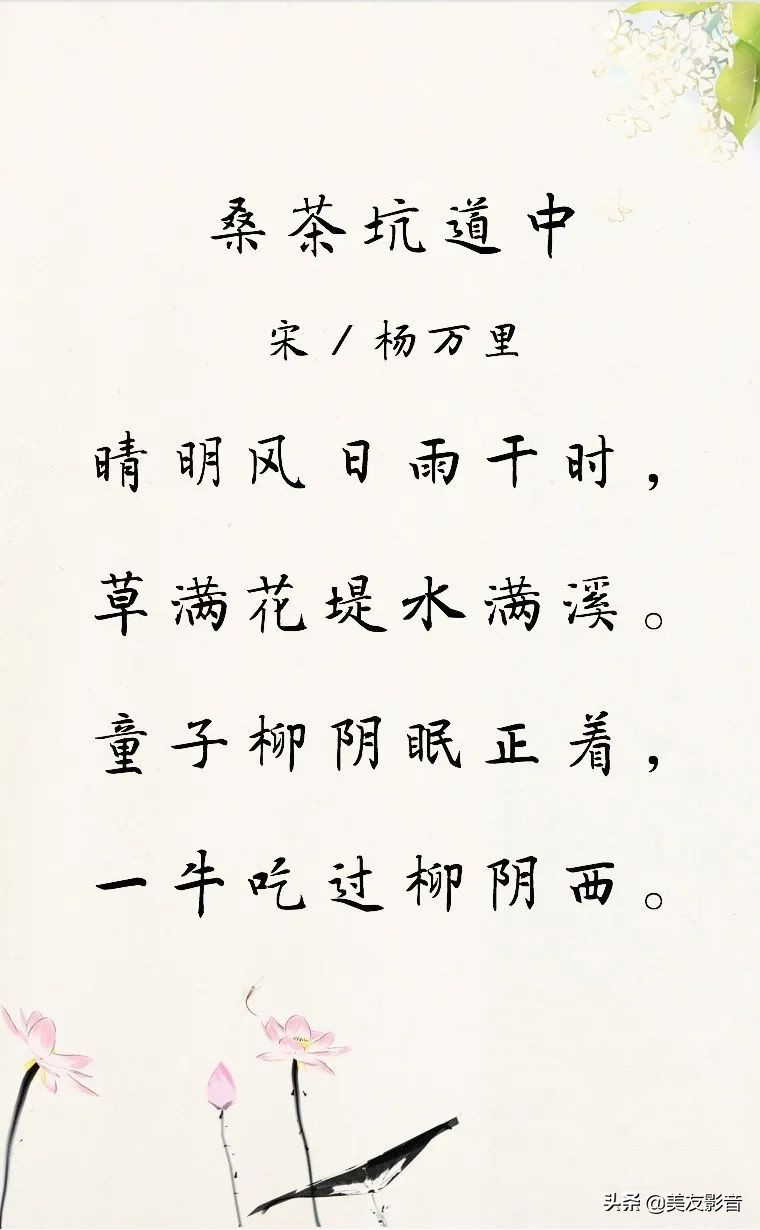 桑茶坑道中
宋/杨万里
晴明风日雨干时，
草满花堤水满溪。
童子柳阴眠正着，
一牛吃过柳阴西。
头条 @美友影音